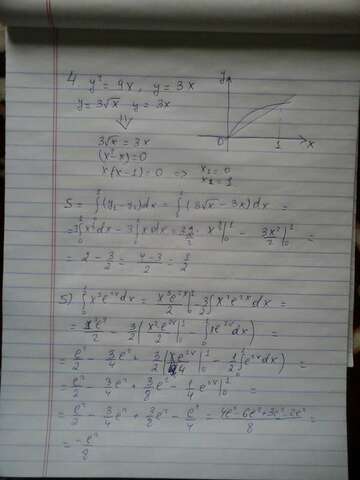 4 y² = 9x, y = 3x
y = 3√x y = 3x
y
3√x = 3x
(x² - x) = 0
x(x-1) = 0 => x₁ = 0
x₂ = 1
0 1 x
S = ∫₀¹(y₁-y₂)dx = ∫₀¹(3√x - 3x)dx =
= 3∫₀¹x^½dx - 3∫₀¹xdx = 3·2/3 · x^(3/2)|₀¹ - 3x²/2|₀¹ =
= 2 - 3/2 = (4-3)/2 = 1/2
5) ∫₀¹x³e²ˣdx = x³e²ˣ/2|₀¹ - 3/2∫₀¹x²e²ˣdx =
= e²/2 - 3/2(x²e²ˣ/2|₀¹ - ∫₀¹xe²ˣdx) =
= e²/2 - 3/4e² + 3/2(xe²ˣ/4|₀¹ - 1/2∫₀¹e²ˣdx) =
= e²/2 - 3/4e² + 3/8e² - 1/4e²ˣ|₀¹ =
= e²/2 - 3/4e² + 3/8e² - e²/4 = (4e²-6e²+3e²-2e²)/8 =
= -e²/8